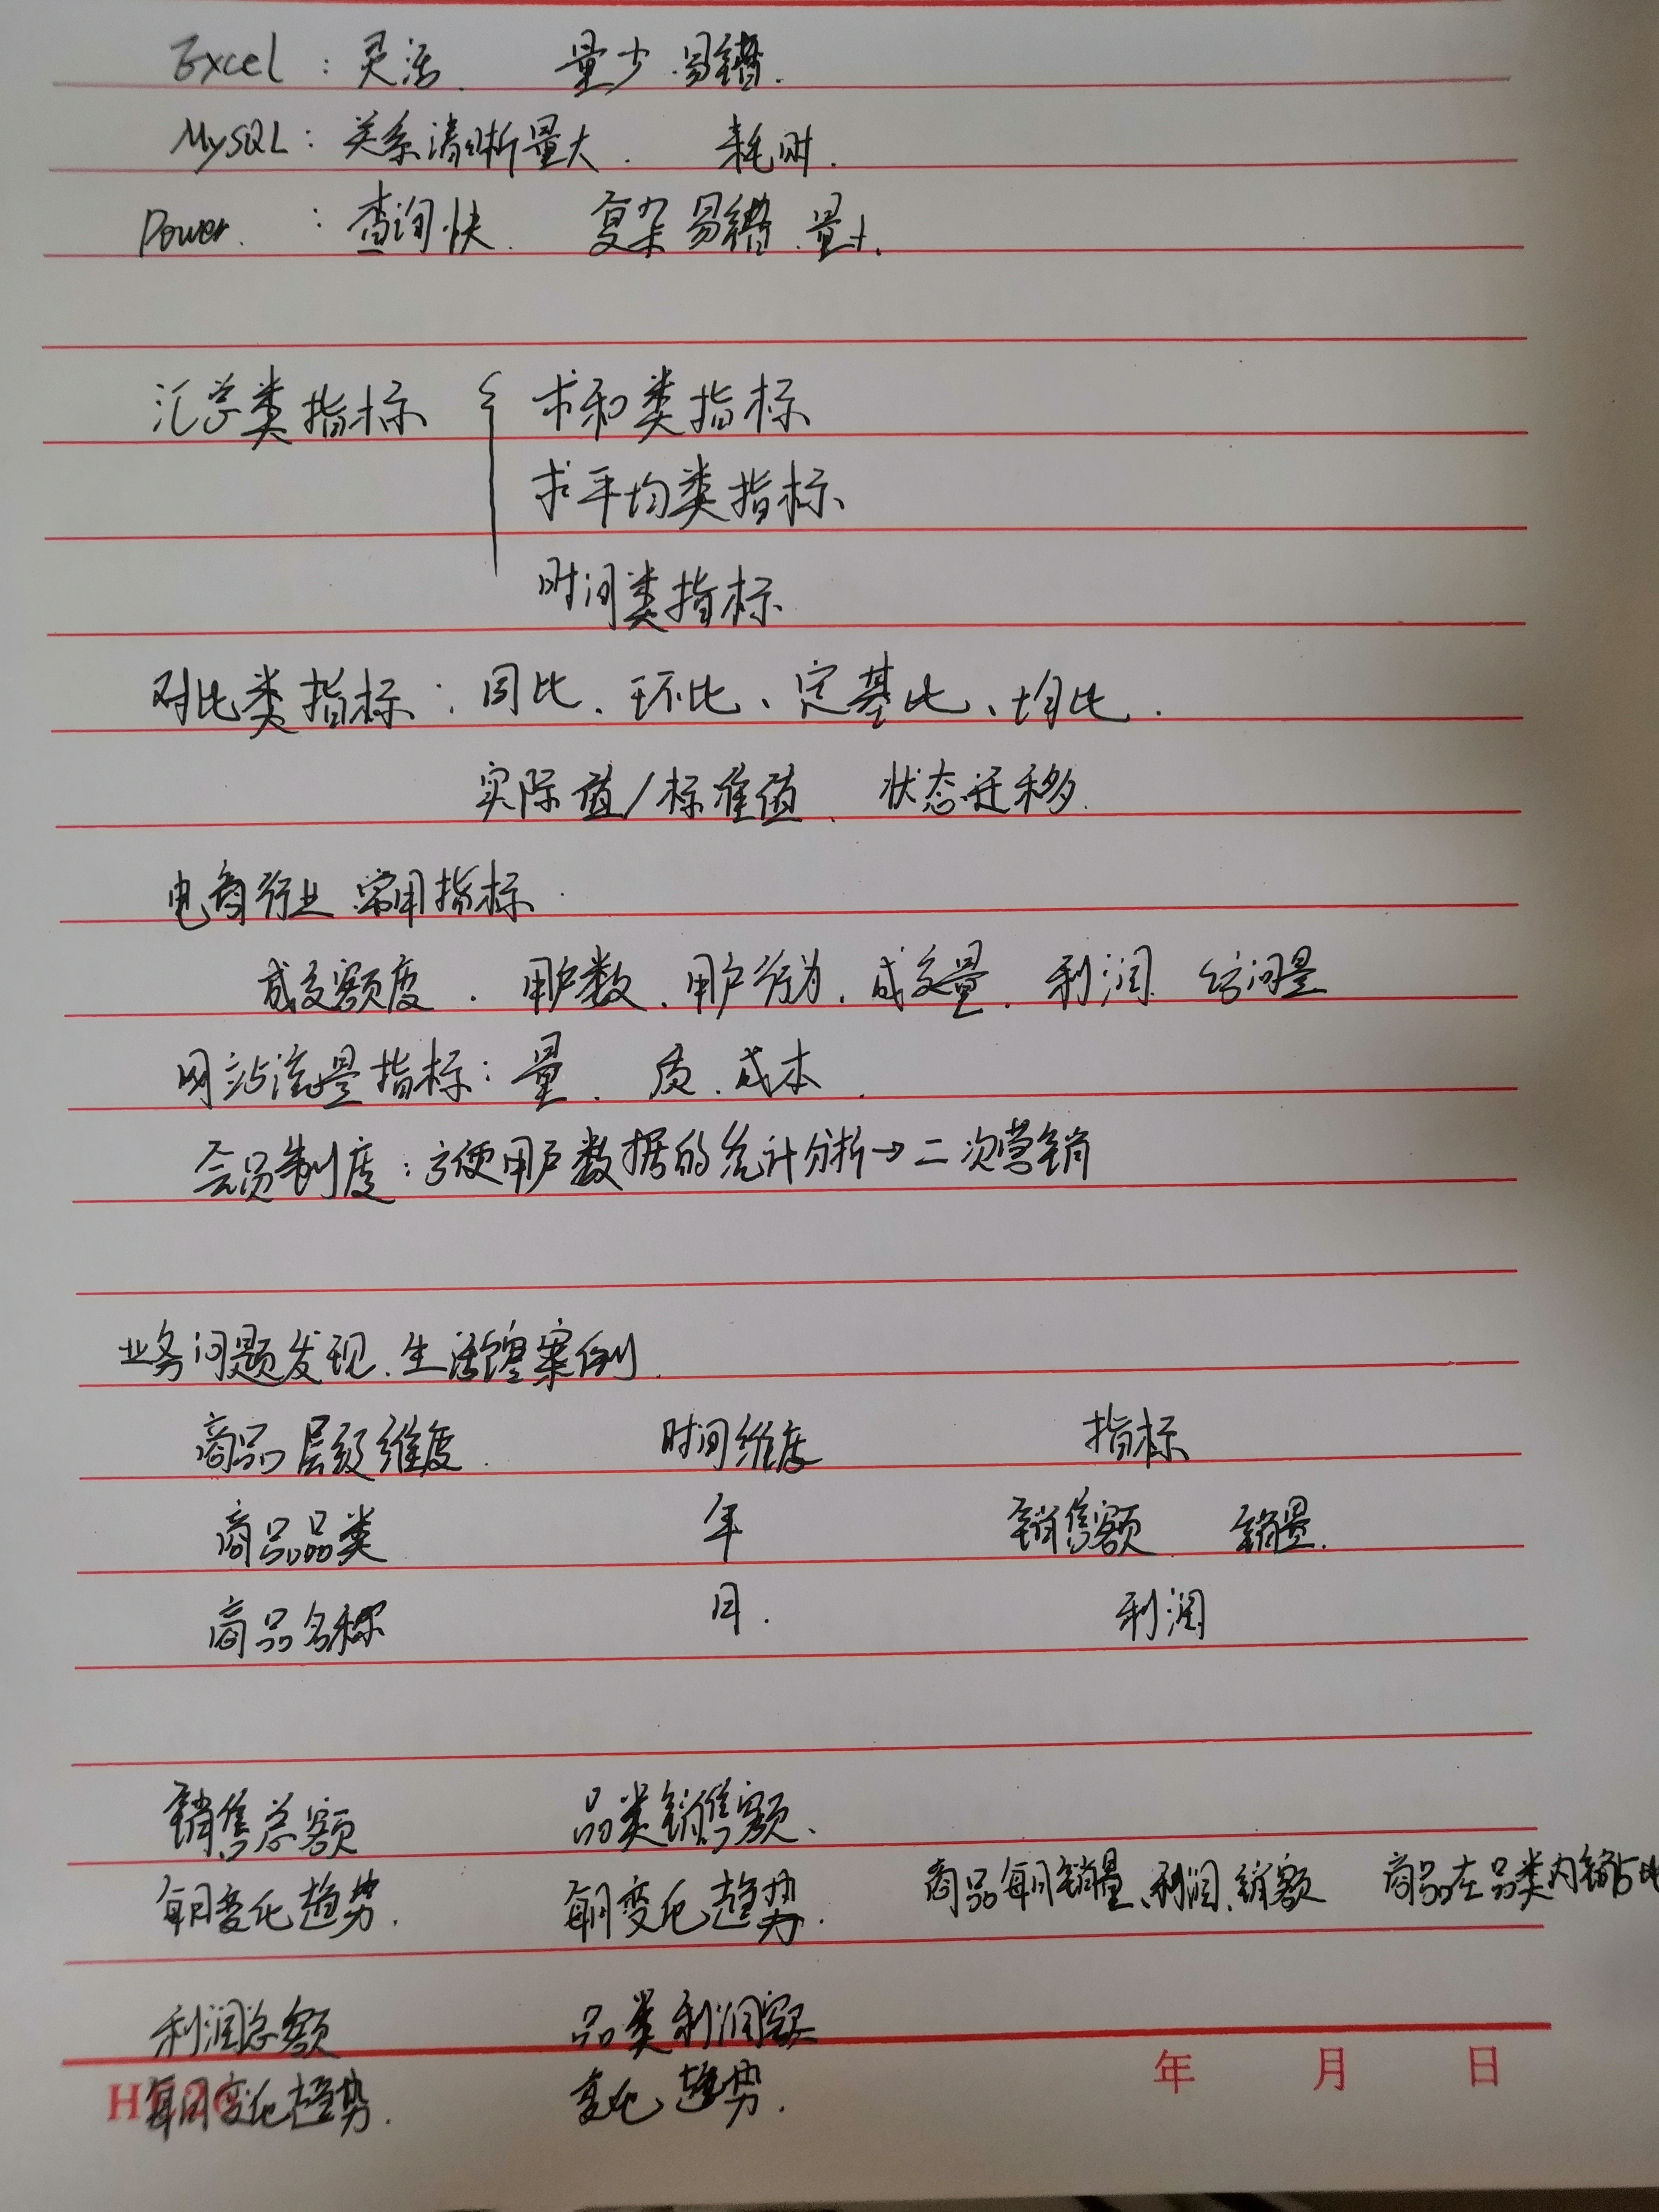 Excel：灵活． 量少 易错．
MySQL：关系清晰量大． 耗时．
Power． ：查询快． 复杂易错．量
汇总类指标 { 求和类指标
求平均类指标
时间类指标
对比类指标：同比、环比、定基比、均比．
实际值/标准值、状态迁移．
电商行业 常用指标．
成交额度．用户数．用户行为．成交量．利润． 访问量
网站流量指标：量．质．成本．
会员制度：方便用户数据的统计分析→二次营销
业务问题发现．生活馆案例．
商品层级维度． 时间维度 指标
商品品类 年 销售额 销量．
商品名称 月． 利润
销售总额 品类销售额、
每月变化趋势． 每月变化趋势． 商品每月销量、利润、销额 商品在品类内销占比
利润总额 品类利润额
每月变化趋势． 变化趋势．
年 月 日